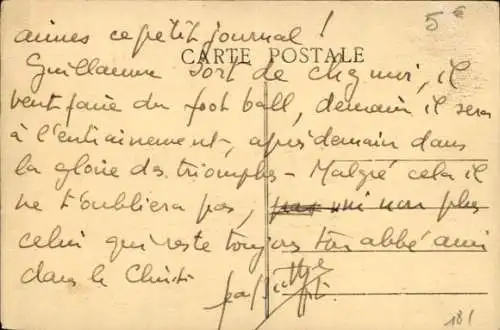 aimes ce petit journal !
5€
CARTE POSTALE
Guillaume sort de chez moi, il
veut faire du foot ball, demain il sera
à l'entrainement, après demain dans
la gloire des triomphes - Malgré cela il
ne t'oubliera pas, pas ni non plus
celui qui reste toujours ton abbé ami
dans le Christ
181